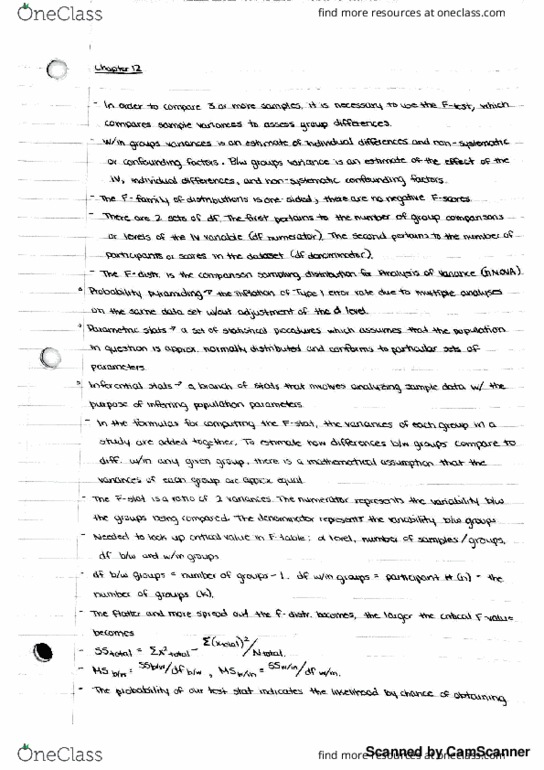 OneClass
find more resources at oneclass.com
Chapter 12
- In order to compare 3 or more samples, it is necessary to use the F-test, which
compares sample variances to assess group differences.
- W/in groups variances is an estimate of individual differences and non-systematic
or confounding factors. B/w groups variance is an estimate of the effect of the
IV, individual differences, and non-systematic confounding factors.
- The F-family of distributions is one-sided, there are no negative F-scores
- There are 2 sets of df. The first pertains to the number of group comparisons
or levels of the IV variable (df numerator). The second pertains to the number of
participants or scores in the dataset (df denominator).
- The F-distr. is the comparison sampling distribution for Analysis of Variance (ANOVA).
Probability pyramiding → the inflation of Type 1 error rate due to multiple analyses
on the same data set w/out adjustment of the α level.
Parametric stats → a set of statistical procedures which assumes that the population
in question is approx. normally distributed and conforms to particular sets of
parameters.
Inferential stats → a branch of stats that involves analyzing sample data w/ the
purpose of inferring population parameters
- In the formulas for computing the F-stat, the variances of each group in a
study are added together. To estimate how differences b/w groups compare to
diff. w/in any given group, there is a mathematical assumption that the
variances of each group are approx equal.
- The F-stat is a ratio of 2 variances. The numerator represents the variability b/w
the groups being compared. The denominator represents the variability b/w groups
- Needed to look up critical value in F-table: α level, number of samples/groups,
df b/w and w/in groups
- df b/w groups = number of groups - 1. df w/in groups = participant # (n) - the
number of groups (k).
- The flatter and more spread out the f-distr. becomes, the larger the critical F value
becomes
- SStotal = Σx²total - Σ(xtotal)²/Ntotal.
- MSb/w = SSb/w/df b/w, MSw/in = SSw/in/df w/in.
- The probability of our test stat indicates the likelihood by chance of obtaining
OneClass
find more resources at oneclass.com
Scanned by CamScanner